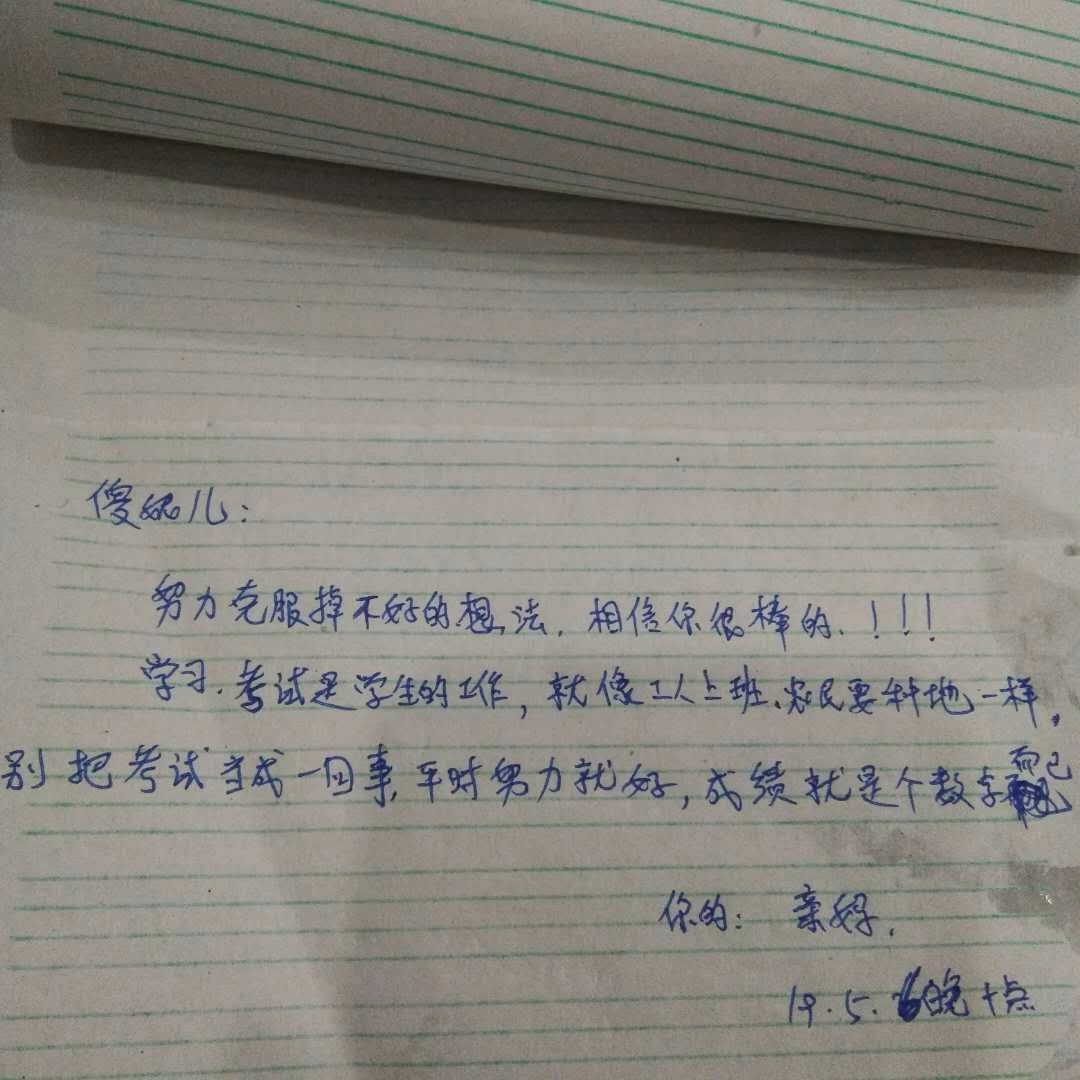 傻妮儿:
努力克服掉不好的想法.相信你很棒的.!!!
学习.考试是学生的工作,就像工人上班、农民要种地一样,
别把考试当成一回事,平时努力就好,成绩就是个数字而已
你的: 亲妈.
19.5.6晚十点